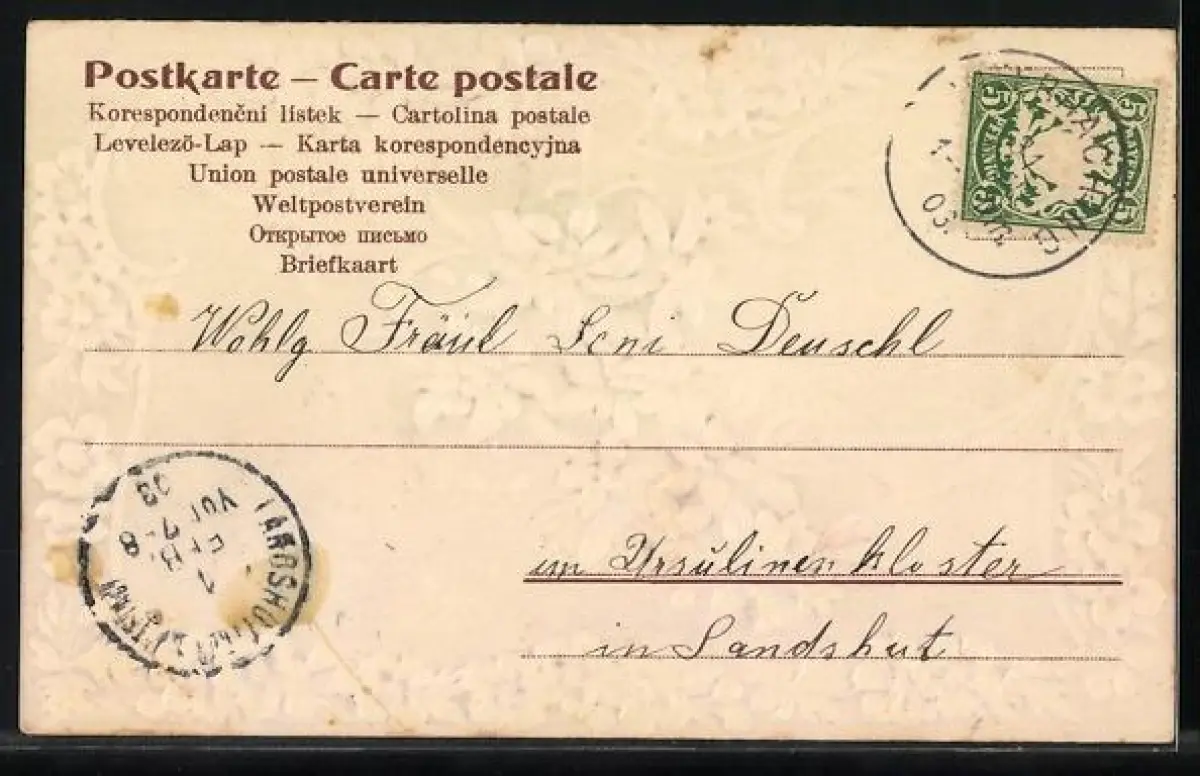 Postkarte – Carte postale
Korespondenční listek — Cartolina postale
Levelező-Lap — Karta korespondencyjna
Union postale universelle
Weltpostverein
Открытое письмо
Briefkaart
Wohlg Fräul Leni Deuschl
im Ursulinenkloster
in Landshut
LANDSHUT
03